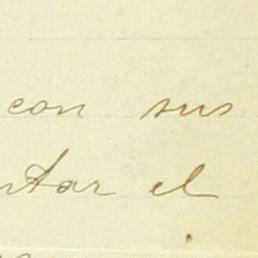 con sus
ntar el